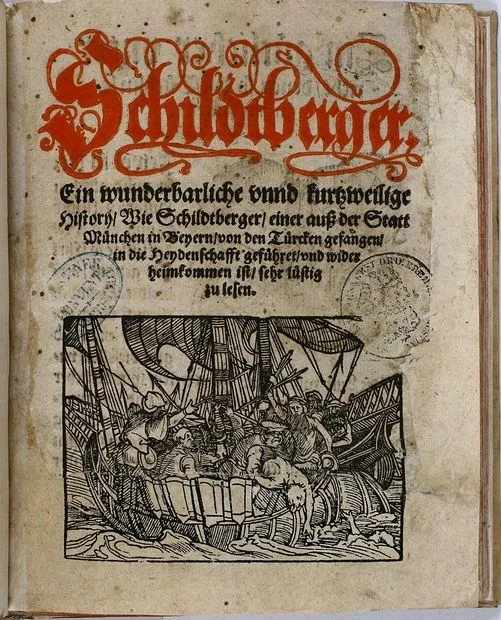 Schildtberger,
Ein wunderbarliche vnnd kurtzweilige
History/ Wie Schildtberger/ einer auß der Statt
München in Beyern/ von den Türcken gefangen/
in die Heydenschafft geführet/ vnd wider
heimkommen ist/ sehr lüstig
zu lesen.